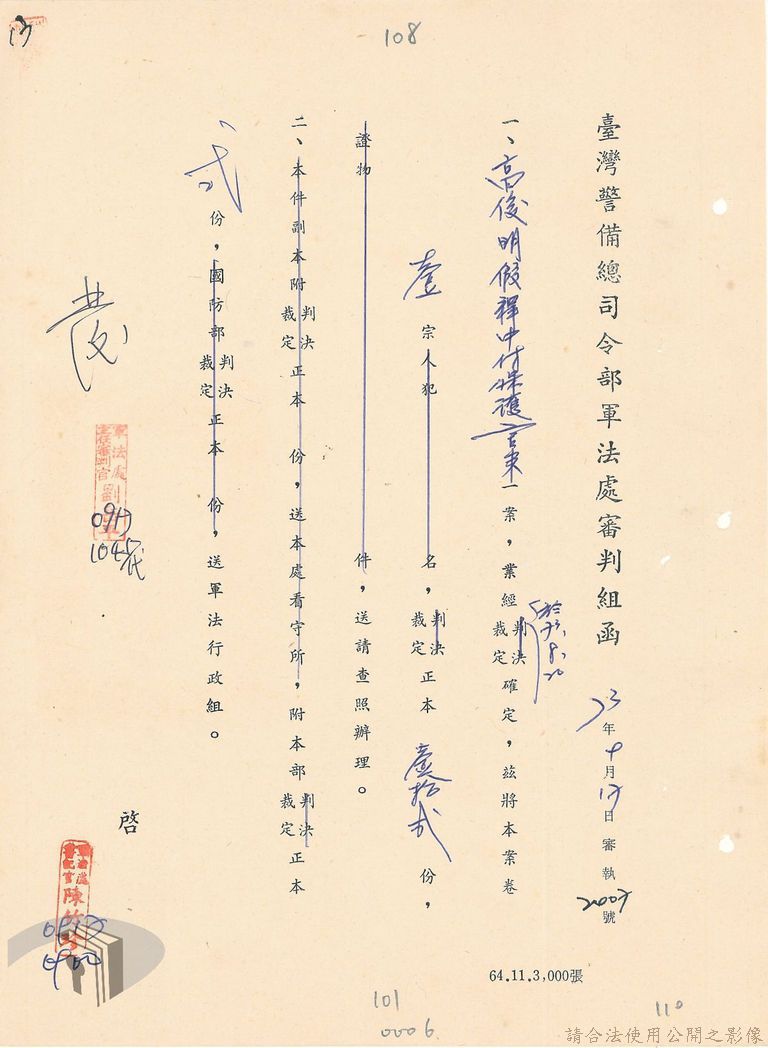 108
臺灣警備總司令部軍法處審判組函
73年十月17日審執2007號
一、高俊明假釋中付保護管束一案，業經判決裁定確定，茲將本案卷
於73.8.20
壹宗人犯 名，判決裁定正本壹拾貳份，
證物 件，送請查照辦理。
二、本件副本附判決裁定正本 份，送本處看守所，附本部判決裁定正本
貳份，國防部判決裁定正本 份，送軍法行政組。
啓
軍法處
審判官劉
陳
64.11.3,000張
101
0006
110
請合法使用公開之影像